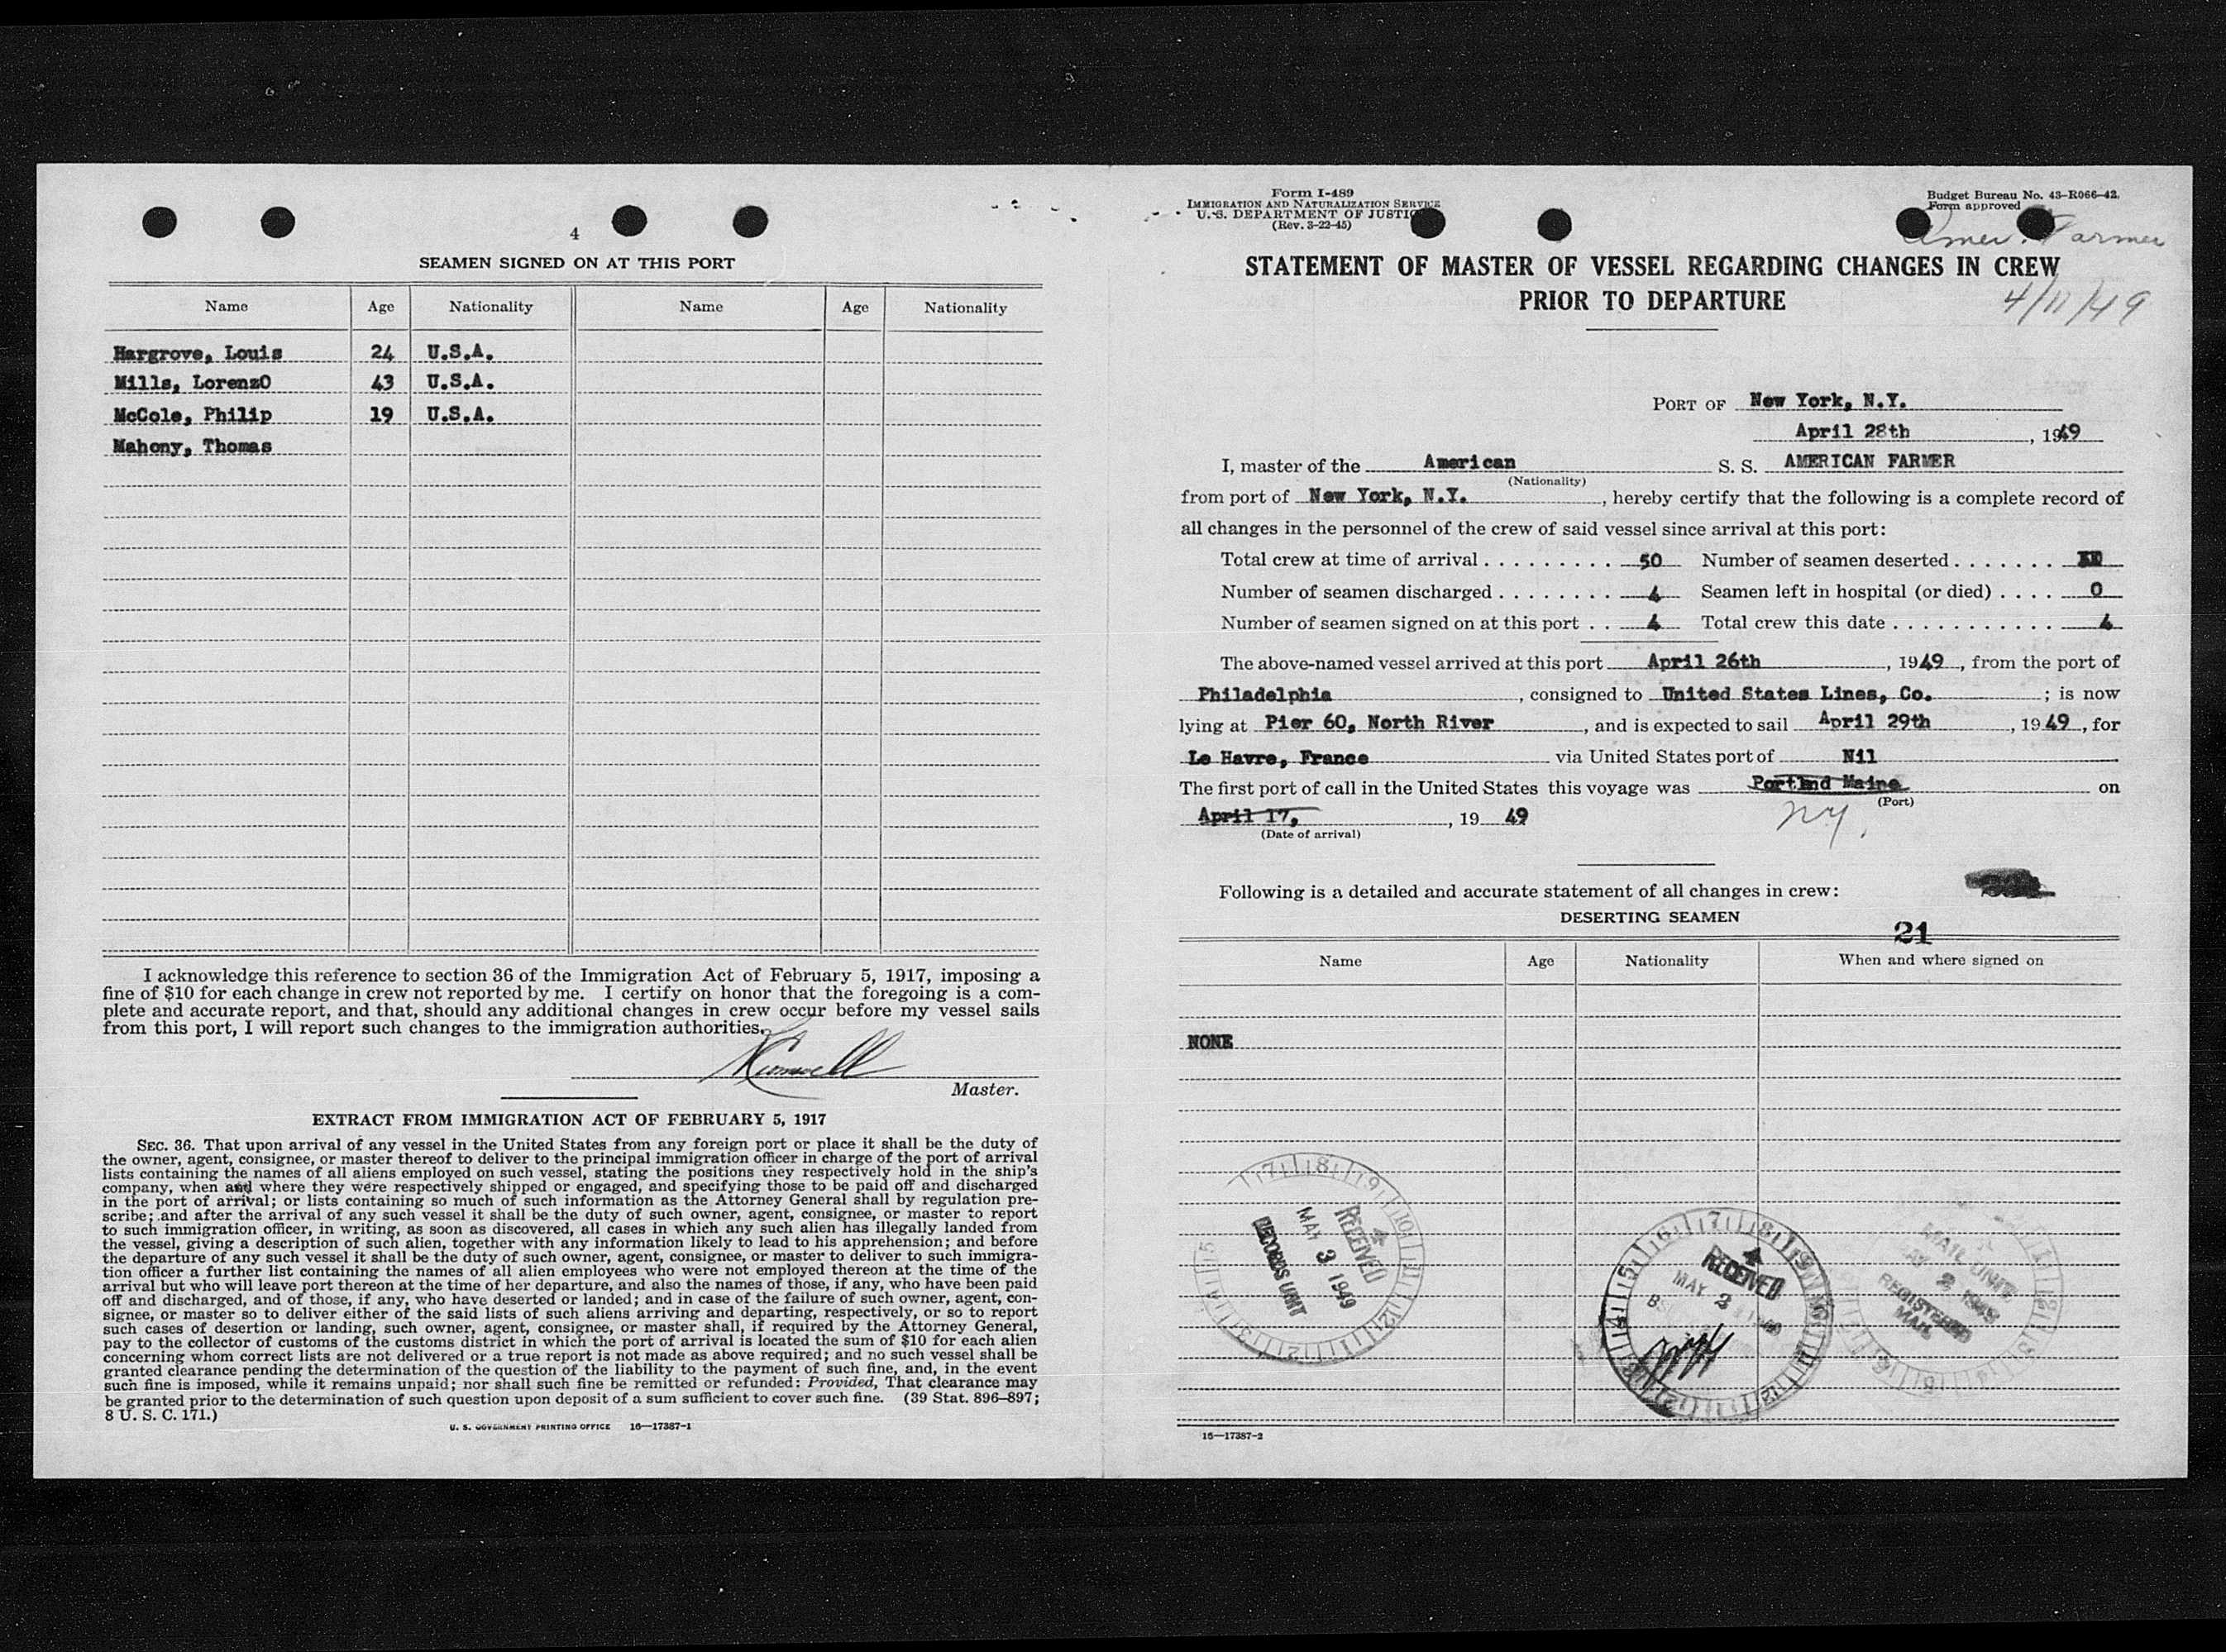 4
SEAMEN SIGNED ON AT THIS PORT
Name Age Nationality Name Age Nationality
Hargrove, Louis 24 U.S.A.
Mills, LorenzO 43 U.S.A.
McCole, Philip 19 U.S.A.
Mahony, Thomas
I acknowledge this reference to section 36 of the Immigration Act of February 5, 1917, imposing a
fine of $10 for each change in crew not reported by me. I certify on honor that the foregoing is a com-
plete and accurate report, and that, should any additional changes in crew occur before my vessel sails
from this port, I will report such changes to the immigration authorities.
Master.
EXTRACT FROM IMMIGRATION ACT OF FEBRUARY 5, 1917
SEC. 36. That upon arrival of any vessel in the United States from any foreign port or place it shall be the duty of
the owner, agent, consignee, or master thereof to deliver to the principal immigration officer in charge of the port of arrival
lists containing the names of all aliens employed on such vessel, stating the positions they respectively hold in the ship's
company, when and where they were respectively shipped or engaged, and specifying those to be paid off and discharged
in the port of arrival; or lists containing so much of such information as the Attorney General shall by regulation pre-
scribe; and after the arrival of any such vessel it shall be the duty of such owner, agent, consignee, or master to report
to such immigration officer, in writing, as soon as discovered, all cases in which any such alien has illegally landed from
the vessel, giving a description of such alien, together with any information likely to lead to his apprehension; and before
the departure of any such vessel it shall be the duty of such owner, agent, consignee, or master to deliver to such immigra-
tion officer a further list containing the names of all alien employees who were not employed thereon at the time of the
arrival but who will leave port thereon at the time of her departure, and also the names of those, if any, who have been paid
off and discharged, and of those, if any, who have deserted or landed; and in case of the failure of such owner, agent, con-
signee, or master so to deliver either of the said lists of such aliens arriving and departing, respectively, or so to report
such cases of desertion or landing, such owner, agent, consignee, or master shall, if required by the Attorney General,
pay to the collector of customs of the customs district in which the port of arrival is located the sum of $10 for each alien
concerning whom correct lists are not delivered or a true report is not made as above required; and no such vessel shall be
granted clearance pending the determination of the question of the liability to the payment of such fine, and, in the event
such fine is imposed, while it remains unpaid; nor shall such fine be remitted or refunded: Provided, That clearance may
be granted prior to the determination of such question upon deposit of a sum sufficient to cover such fine. (39 Stat. 896–897;
8 U. S. C. 171.)
U. S. GOVERNMENT PRINTING OFFICE 16—17387-1
Form I-489
IMMIGRATION AND NATURALIZATION SERVICE
U. S. DEPARTMENT OF JUSTICE
(Rev. 3-22-45)
Budget Bureau No. 43–R066–42.
Form approved
Amer. Farmer
STATEMENT OF MASTER OF VESSEL REGARDING CHANGES IN CREW
PRIOR TO DEPARTURE
4/11/49
PORT OF New York, N.Y.
April 28th, 1949
I, master of the American S. S. AMERICAN FARMER
(Nationality)
from port of New York, N.Y., hereby certify that the following is a complete record of
all changes in the personnel of the crew of said vessel since arrival at this port:
Total crew at time of arrival . . . . . . . . . 50 Number of seamen deserted . . . . . . .
Number of seamen discharged . . . . . . . . 4 Seamen left in hospital (or died) . . . . 0
Number of seamen signed on at this port . . 4 Total crew this date . . . . . . . . . . . 4
The above-named vessel arrived at this port April 26th, 1949, from the port of
Philadelphia, consigned to United States Lines, Co. ; is now
lying at Pier 60, North River, and is expected to sail April 29th, 1949, for
Le Havre, France via United States port of Nil
The first port of call in the United States this voyage was Portlnd Maine on
(Port)
April 17, , 19 49 NY.
(Date of arrival)
Following is a detailed and accurate statement of all changes in crew:
DESERTING SEAMEN
21
Name Age Nationality When and where signed on
NONE
RECEIVED
MAY 3 1949
RECORDS UNIT
RECEIVED
MAY 3
MAIL UNIT
MAY 2 1949
REGISTERED
MAIL
16—17387-2